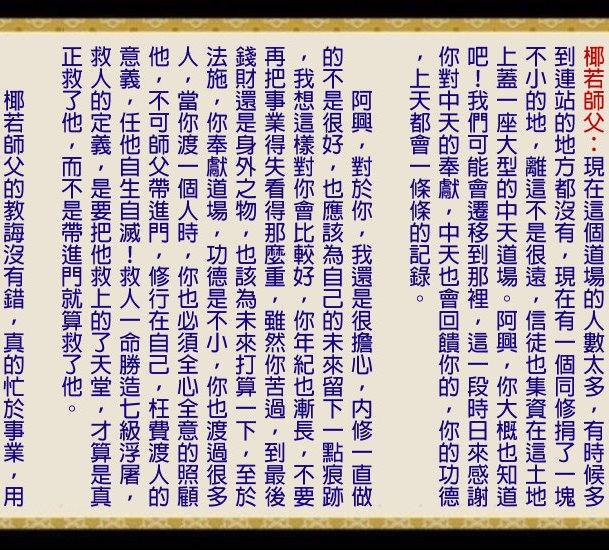 椰若師父：現在這個道場的人數太多，有時候多
到連站的地方都沒有，現在有一個同修捐了一塊
不小的地，離這不是很遠，信徒也集資在這土地
上蓋一座大型的中天道場。阿興，你大概也知道
吧！我們可能會遷移到那裡，這一段時日來感謝
你對中天的奉獻，中天也會回饋你的，你的功德
，上天都會一條條的記錄。
阿興，對於你，我還是很擔心，內修一直做
的不是很好，也應該為自己的未來留下一點痕跡
，我想這樣對你會比較好，你年紀也漸長，不要
再把事業得失看得那麼重，雖然你苦過，到最後
錢財還是身外之物，也該為未來打算一下，至於
法施，你奉獻道場，功德是不小，你也渡過很多
人，當你渡一個人時，你也必須全心全意的照顧
他，不可師父帶進門，修行在自己，枉費渡人的
意義，任他自生自滅！救人一命勝造七級浮屠，
救人的定義，是要把他救上的了天堂，才算是真
正救了他，而不是帶進門就算救了他。
椰若師父的教誨沒有錯，真的忙於事業，用